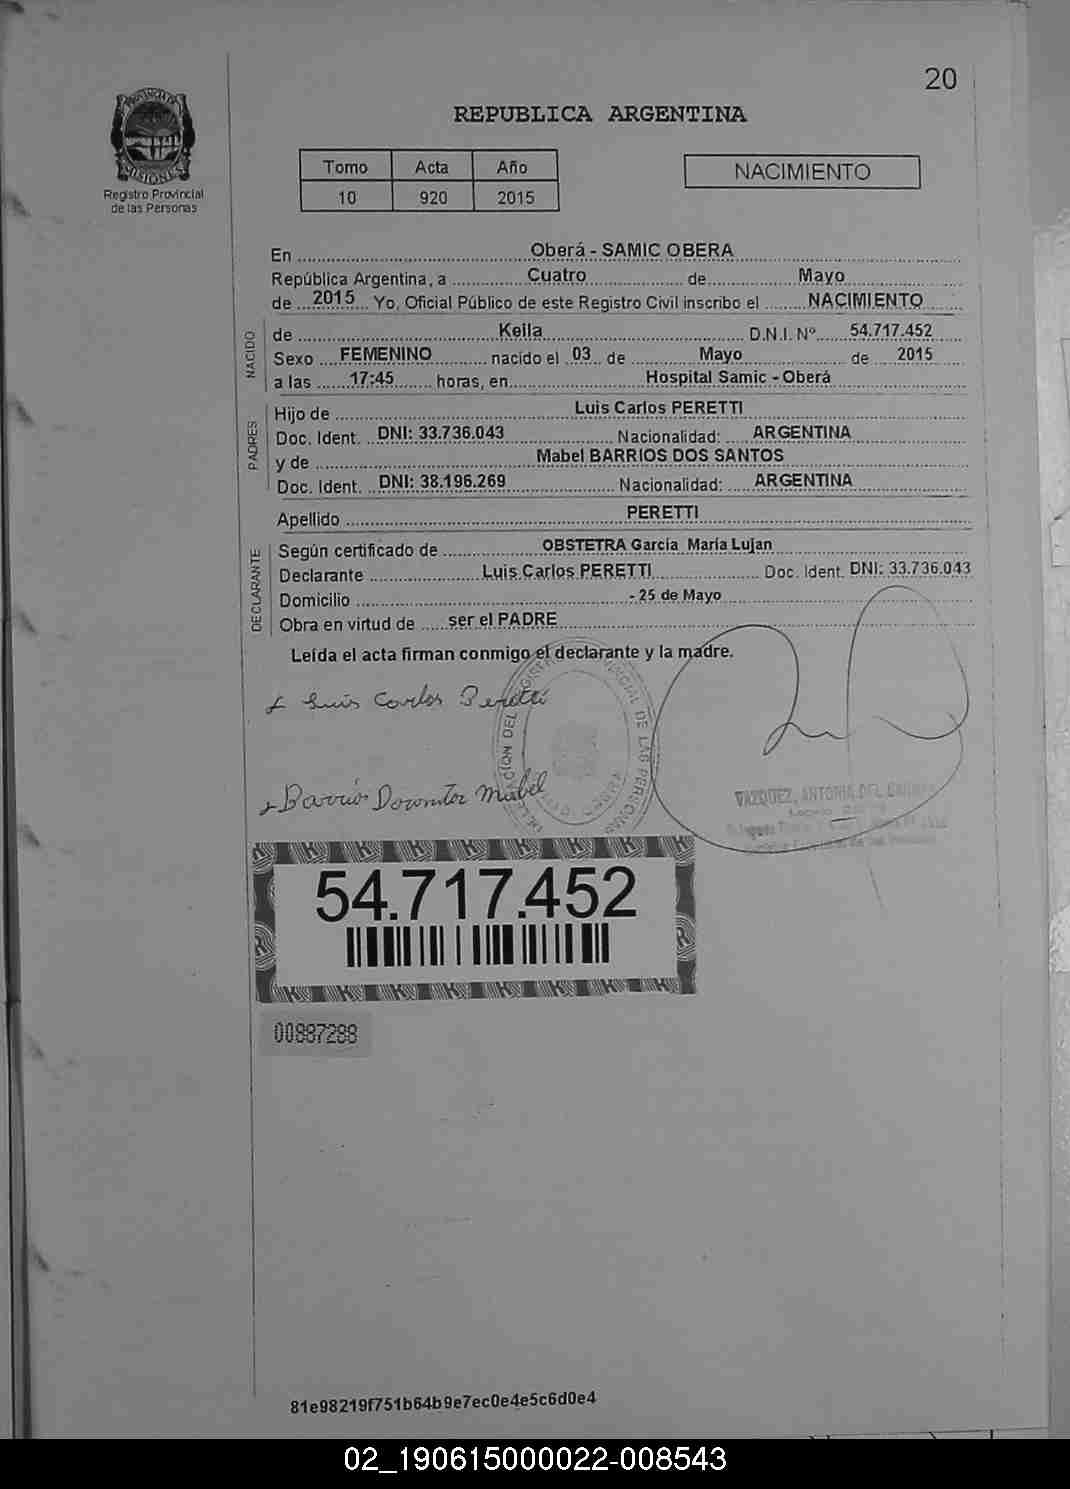 20
PROVINCIA DE
MISIONES
Registro Provincial
de las Personas
REPUBLICA ARGENTINA
Tomo Acta Año
10 920 2015
NACIMIENTO
En Oberá - SAMIC OBERA
República Argentina, a Cuatro de Mayo
de 2015 Yo, Oficial Público de este Registro Civil inscribo el NACIMIENTO
NACIDO
de Keila D.N.I. Nº 54.717.452
Sexo FEMENINO nacido el 03 de Mayo de 2015
a las 17:45 horas, en Hospital Samic - Oberá
PADRES
Hijo de Luis Carlos PERETTI
Doc. Ident. DNI: 33.736.043 Nacionalidad: ARGENTINA
y de Mabel BARRIOS DOS SANTOS
Doc. Ident. DNI: 38.196.269 Nacionalidad: ARGENTINA
Apellido PERETTI
DECLARANTE
Según certificado de OBSTETRA García María Lujan
Declarante Luis Carlos PERETTI Doc. Ident. DNI: 33.736.043
Domicilio - 25 de Mayo
Obra en virtud de ser el PADRE
Leída el acta firman conmigo el declarante y la madre.
Luis Carlos Peretti
Barrios Mabel
DEL PROVINCIAL DE LAS PERSONAS
VAZQUEZ, ANTONIA DEL
54.717.452
00887288
81e98219f751b64b9e7ec0e4e5c6d0e4
02_190615000022-008543